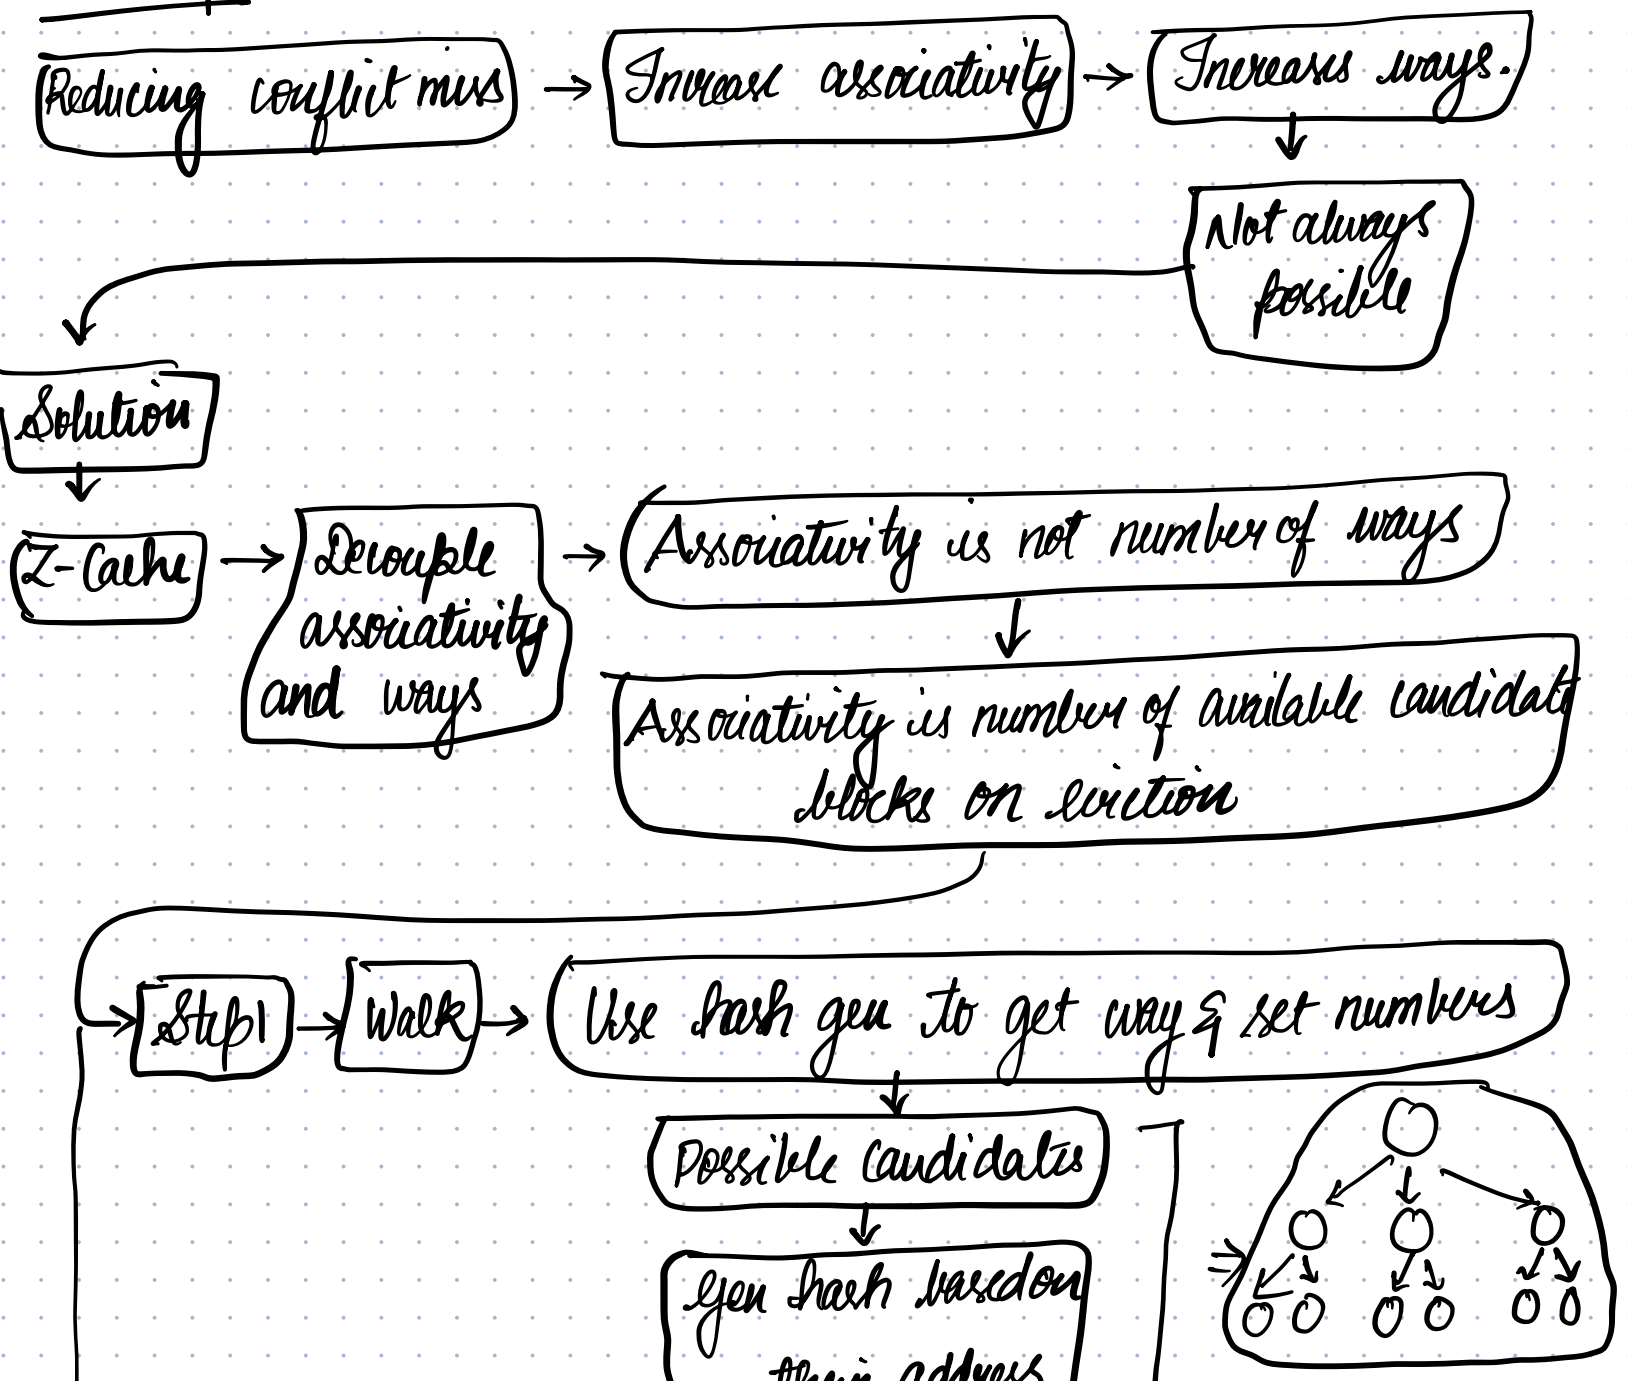 Reducing conflict miss
Increase associativity
Increases ways.
Not always
possible
Solution
Z-Cache
Decouple
associativity
and ways
Associativity is not number of ways
Associativity is number of available candidate
blocks on eviction
Step1
Walk
Use hash gen to get way & set numbers
Possible candidates
Gen hash based on
their address